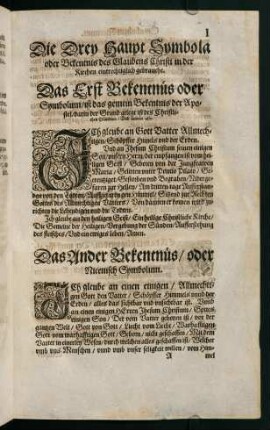 1
Die Drey Haupt Symbola
oder Bekentnis des Glaubens Christi in der
Kirchen eintrechtiglich gebraucht.
Das Erst Bekenntnis oder
Symbolum / ist das gemein Bekentnis der Apo-
stel / darin der Grund gelegt ist des Christli-
chen Glaubens.
ICh gleube an Gott Vatter Allmech-
tigen / Schöpffer Himels und der Erden.
Und an Jhesum Christum seinen einigen
Son / unsern Herrn / der empfangen ist vom hei-
ligen Geist / Geboren von der Jungfrawen
Maria / Gelitten unter Pontio Pilato / Ge-
creutziget / Gestorben und Begraben / Niderge-
faren zur Hellen / Am dritten tage Aufferstan-
den von den Todten / Auffgefaren gen Himmel / Sitzend zur Rechten
Gottes des Allmechtigen Vatters / Von dannen er komen wird / zu
richten die Lebendigen und die Todten.
Ich gleube an den heiligen Geist / Ein heilige Christliche Kirche /
Die Gemeine der Heiligen / Vergebung der Sünden / Aufferstehung
des fleisches / Und ein ewiges leben / Amen.
Das Ander Bekentnüs / oder
Nicenisch Symbolum.
ICh gleube an einen einigen / Allmechti-
gen Gott den Vatter / Schöpffer Himmels und der
Erden / alles das sichtbar und unsichtbar ist. Und
an einen einigen HErrn Jhesum Christum / Gottes
einigen Son / Der vom Vatter geboren ist / vor der
gantzen Welt / Gott von Gott / Liecht vom Liecht / Warhafftigen
Gott vom warhafftigen Gott / Geborn / nicht geschaffen / Mit dem
Vatter in einerley Wesen / durch welchen alles geschaffen ist / Welcher
umb uns Menschen / und umb unser seligkeit willen / von Him-
A
mel